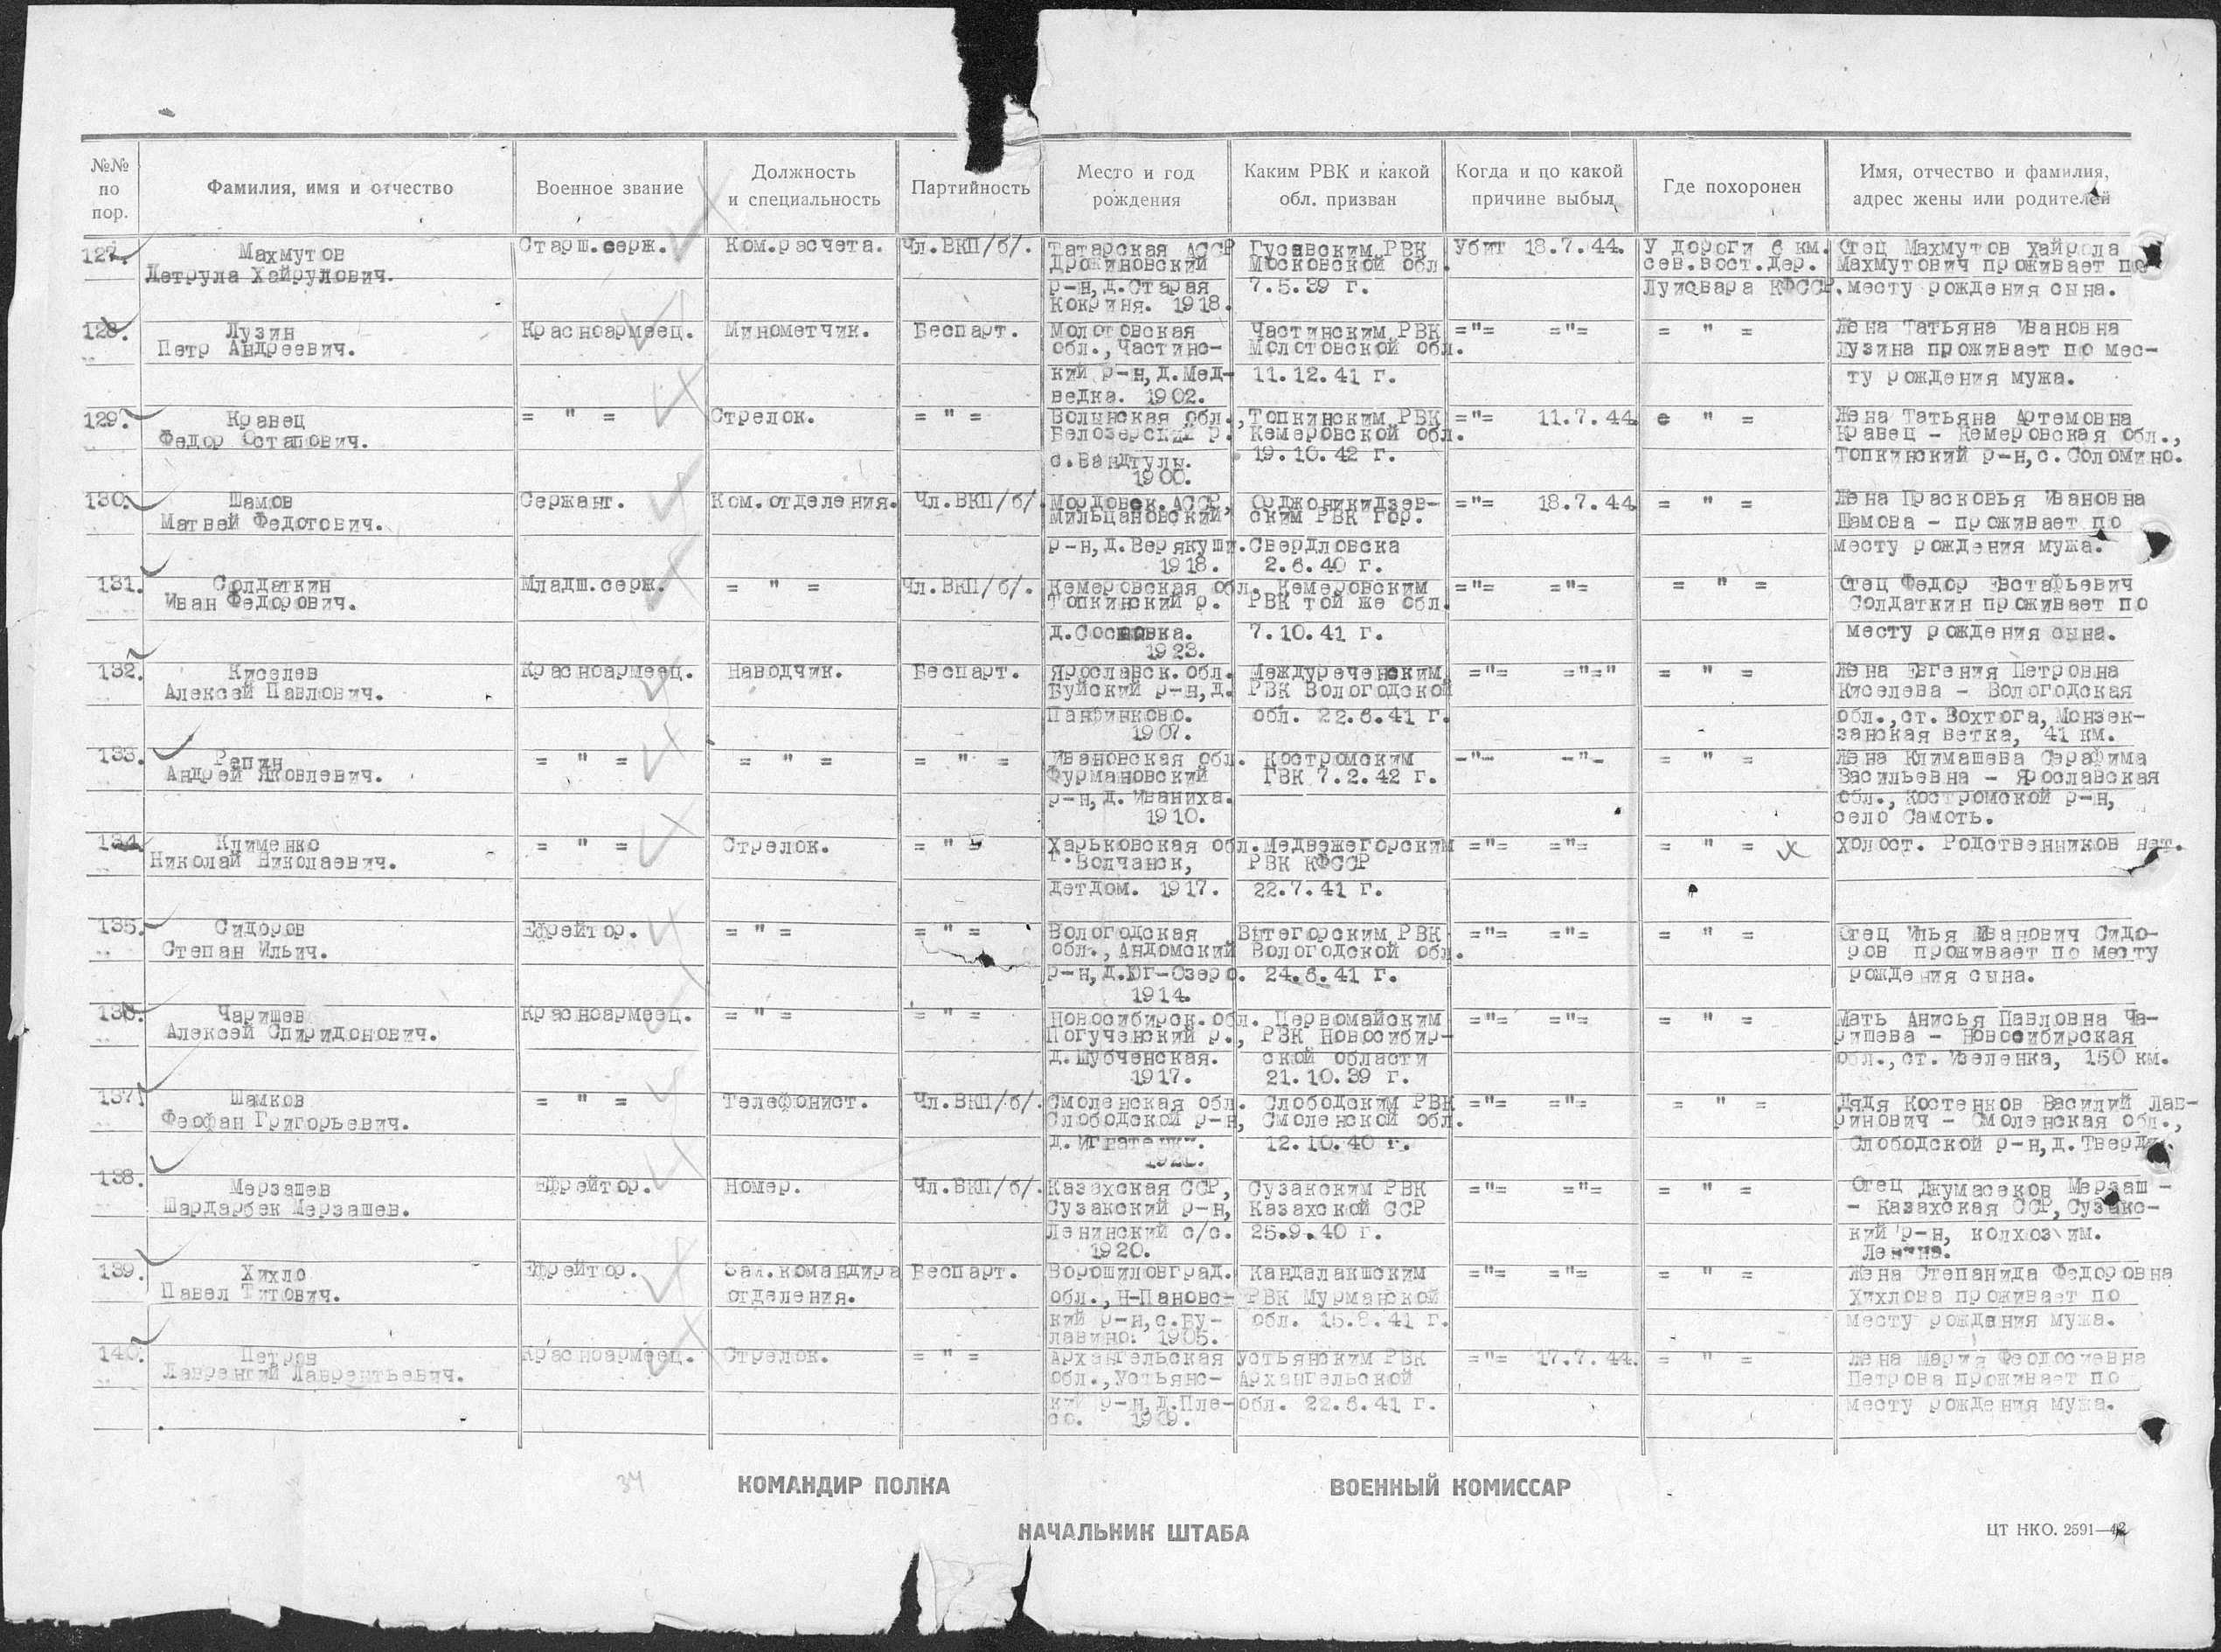 №№ по пор. | Фамилия, имя и отчество | Военное звание | Должность и специальность | Партийность | Место и год рождения | Каким РВК и какой обл. призван | Когда и по какой причине выбыл | Где похоронен | Имя, отчество и фамилия, адрес жены или родителей
127. | Махмутов | Старш.серж. | Ком.расчета. | Чл.ВКП/б/. | Татарская АССР | Гусевским РВК | Убит 18.7.44. | У дороги 6 км. | Отец Махмутов Хайрула
Летрула Хайрулович. | Дрожиновский | Московской обл. | сев.вост.дер. | Махмутович проживает по
р-н,д.Старая | 7.5.39 г. | Луисвара КФССР. | месту рождения сына.
Кокриня. 1918.
128. | Лузин | Красноармеец. | Минометчик. | Беспарт. | Молотовская | Частинским РВК | ="= ="= | = " = | Жена Татьяна Ивановна
Петр Андреевич. | обл.,Частинс- | Молотовской обл. | Лузина проживает по мес-
кий р-н,д.Мед- | 11.12.41 г. | ту рождения мужа.
ведка. 1902.
129. | Кравец | = " = | Стрелок. | = " = | Волынская обл., | Топкинским РВК | ="= 11.7.44. | е " = | Жена Татьяна Артемовна
Федор Остапович. | Белозерский р. | Кемеровской обл. | Кравец - Кемеровская обл.,
с.Вандтулы. | 19.10.42 г. | Топкинский р-н,с.Соломино.
1900.
130. | Шамов | Сержант. | Ком.отделения. | Чл.ВКП/б/. | Мордовск.АССР, | Орджоникидзев- | ="= 18.7.44. | = " = | Жена Прасковья Ивановна
Матвей Федотович. | Мильцановский, | ским РВК гор. | Шамова - проживает по
р-н,д.Верякуши. | Свердловска | месту рождения мужа.
1918. | 2.6.40 г.
131. | Солдаткин | Младш.серж. | = " = | Чл.ВКП/б/. | Кемеровская обл. | Кемеровским | ="= ="= | = " = | Отец Федор Евстафьевич
Иван Федорович. | Топкинский р. | РВК той же обл. | Солдаткин проживает по
д.Сосновка. | 7.10.41 г. | месту рождения сына.
1923.
132. | Киселев | Красноармеец. | Наводчик. | Беспарт. | Ярославск.обл. | Междуреченским | ="= ="=" | = " = | Жена Евгения Петровна
Алексей Павлович. | Буйский р-н,д. | РВК Вологодской | Киселева - Вологодская
Панфинково. | обл. 22.6.41 г. | обл.,ст.Вохтога,Монзек-
1907. | занская ветка, 41 км.
133. | Репин | = " = | = " = | = " = | Ивановская обл. | Костромским | -"- -"- | = " = | Жена Климашева Серафима
Андрей Яковлевич. | Фурмановский | ГВК 7.2.42 г. | Васильевна - Ярославская
р-н,д. Иваниха. | обл.,Костромской р-н,
1910. | село Самоть.
134. | Клименко | = " = | Стрелок. | = " = | Харьковская обл. | Медвежегорским | ="= ="= | = " = | Холост. Родственников нет.
Николай Николаевич. | г.Волчанск, | РВК КФССР
детдом. 1917. | 22.7.41 г.
135. | Сидоров | Ефрейтор. | = " = | = " = | Вологодская | Вытегорским РВК | ="= ="= | = " = | Отец Илья Иванович Сидо-
Степан Ильич. | обл.,Андомский | Вологодской обл. | ров проживает по месту
р-н,д.Юг-Озеро. | 24.6.41 г. | рождения сына.
1914.
136. | Чаришев | Красноармеец. | = " = | = " = | Новосибирск.обл. | Первомайским | ="= ="= | = " = | Мать Анисья Павловна Ча-
Алексей Спиридонович. | Погученский р., | РВК Новосибир- | ришева - Новосибирская
д.Шубченская. | ской области | обл.,ст.Изеленка, 150 км.
1917. | 21.10.39 г.
137. | Шамков | = " = | Телефонист. | Чл.ВКП/б/. | Смоленская обл. | Слободским РВК | ="= ="= | = " = | Дядя Костенков Василий Лав-
Феофан Григорьевич. | Слободской р-н, | Смоленской обл. | ринович - Смоленская обл.,
д. | 12.10.40 г. | Слободской р-н,д.
138. | Мерзашев | Ефрейтор. | Номер. | Чл.ВКП/б/. | Казахская ССР, | Сузакским РВК | ="= ="= | = " = | Отец Джумасеков Мерзаш -
Шардарбек Мерзашев. | Сузакский р-н, | Казахской ССР | - Казахская ССР,Сузакс-
Ленинский с/с. | 25.9.40 г. | кий р-н, колхоз им.
1920. | Ленина.
139. | Хихло | Ефрейтор. | Зам.командира | Беспарт. | Ворошиловград. | Кандалакшским | ="= ="= | = " = | Жена Степанида Федоровна
Павел Титович. | отделения. | обл.,Н-Пановс- | РВК Мурманской | Хихлова проживает по
кий р-н,с.Бу- | обл. 15.8.41 г. | месту рождения мужа.
лавино. 1905.
140. | Петров | Красноармеец. | Стрелок. | = " = | Архангельская | Устьянским РВК | ="= 17.7.44. | = " = | Жена Мария Феодосиевна
Лаврентий Лаврентьевич. | обл.,Устьянс- | Архангельской | Петрова проживает по
кий р-н,д.Пле- | обл. 22.6.41 г. | месту рождения мужа.
со. 1909.
34
КОМАНДИР ПОЛКА
ВОЕННЫЙ КОМИССАР
НАЧАЛЬНИК ШТАБА
ЦТ НКО. 2591—42